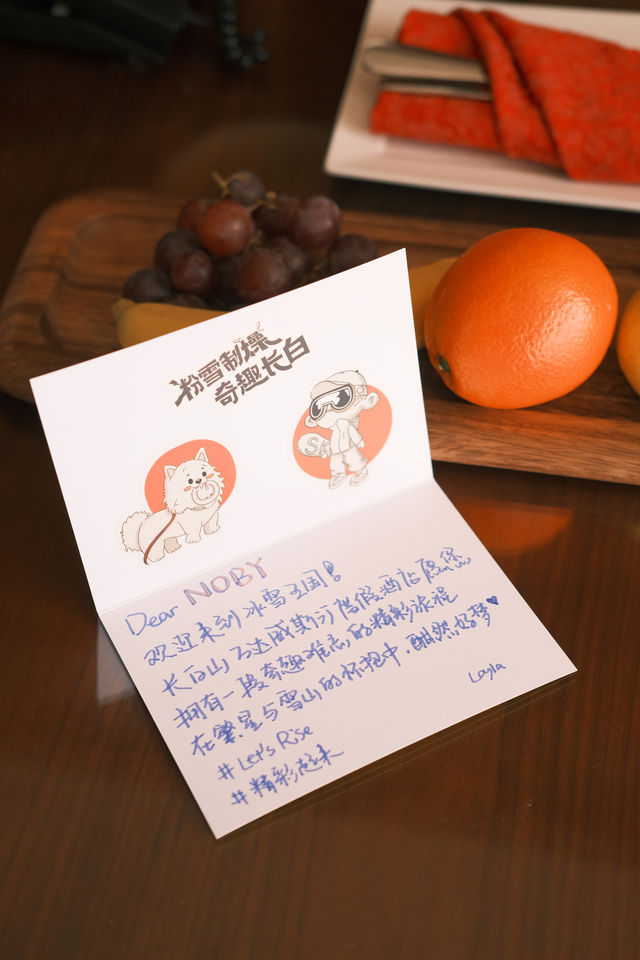 粉雪制燥
奇趣长白
Sk
Dear NOBY
欢迎来到冰雪王国!
长白山万达威斯汀度假酒店愿您
拥有一段奇趣难忘的精彩旅程
在繁星与雪山的怀抱中,酣然好梦♥
Layla
#Let's Rise
#精彩起来